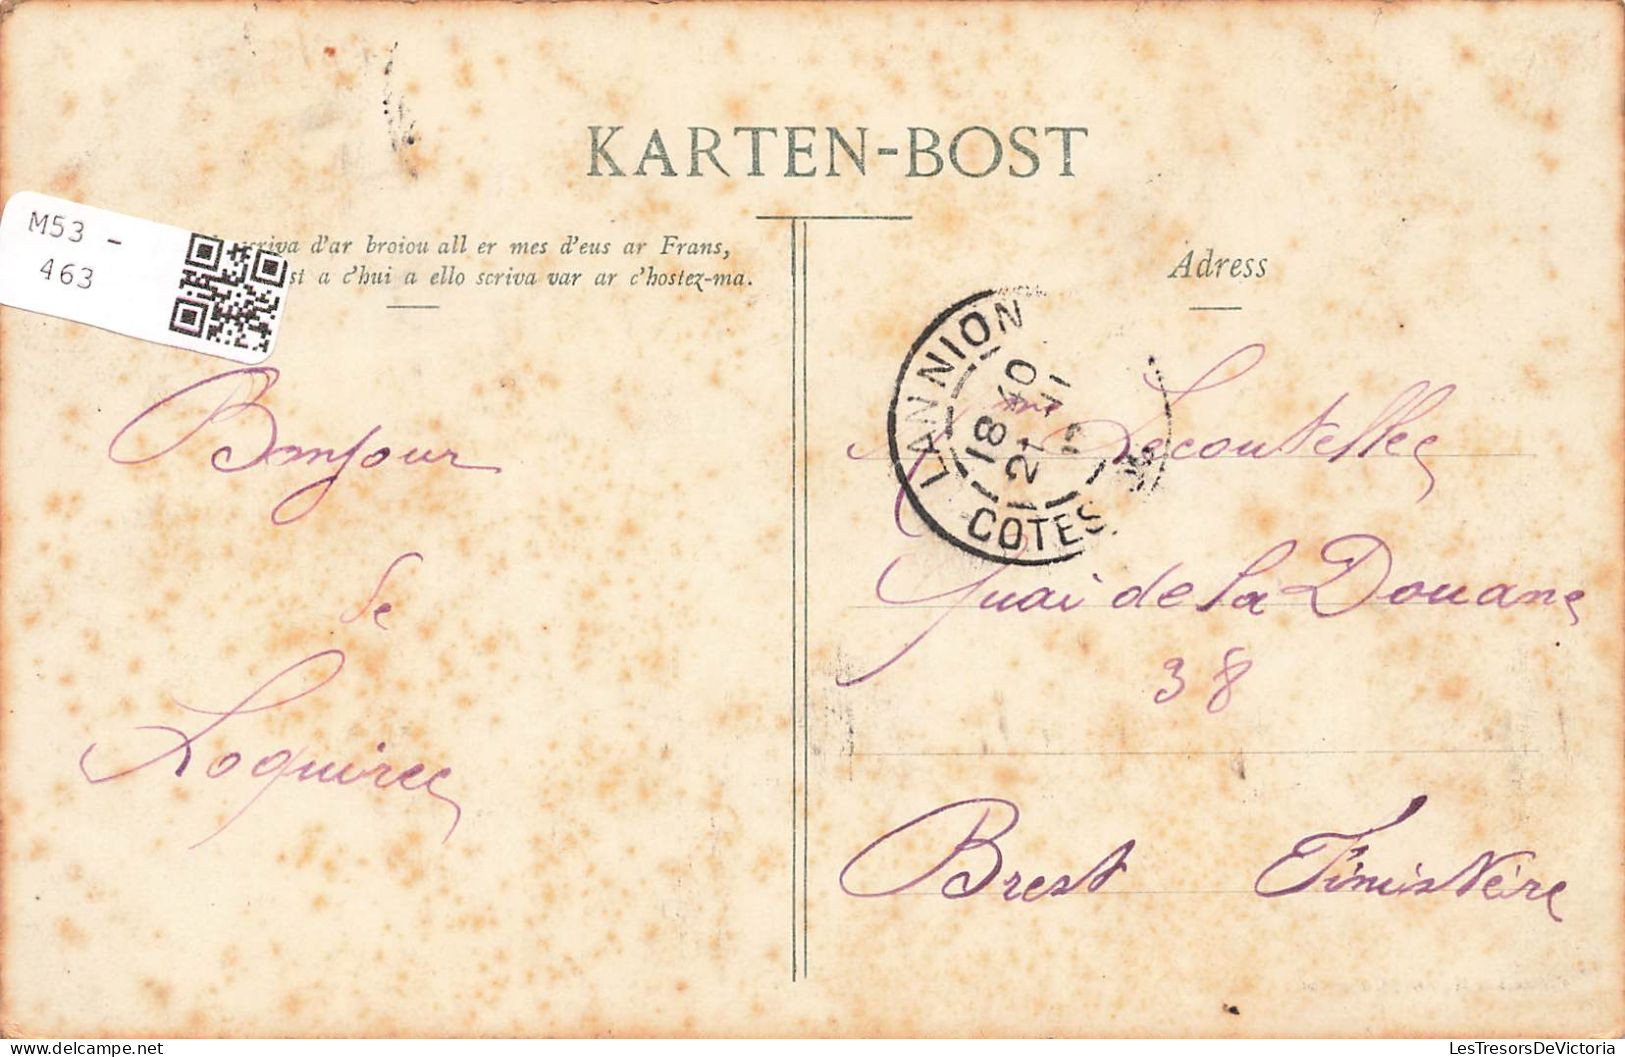 KARTEN-BOST
scriva d'ar broiou all er mes d'eus ar Frans,
a c'hui a ello scriva var ar c'hostez-ma.
M53 -
463
Adress
LANNION
18 40
21 11
COTES
Bonjour
de
Loquirec
Lecoutellec
Quai de la Douane
38
Brest Finistère
LesTresorsDeVictoria